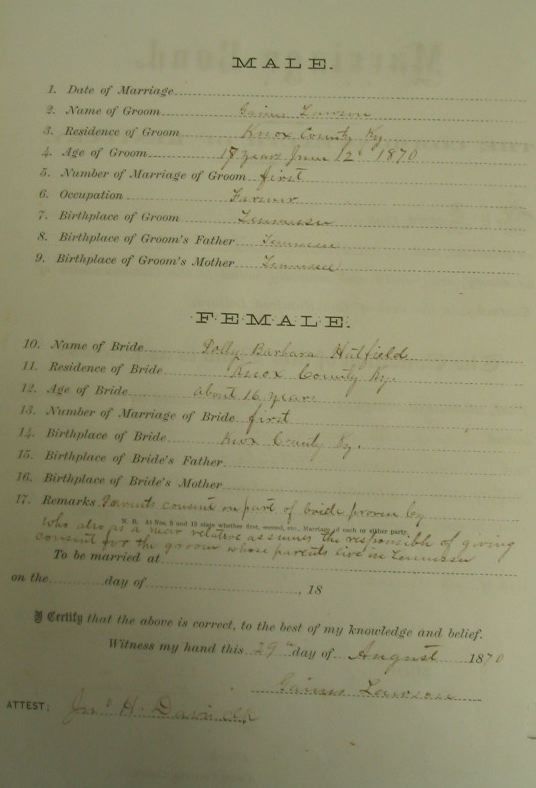 MALE.
1. Date of Marriage
2. Name of Groom Gainus Lawson
3. Residence of Groom Knox County Ky.
4. Age of Groom 18 years June 12th 1870
5. Number of Marriage of Groom first
6. Occupation Farmer
7. Birthplace of Groom Tennessee
8. Birthplace of Groom's Father Tennessee
9. Birthplace of Groom's Mother Tennessee
FEMALE.
10. Name of Bride Polly Barbara Hatfield
11. Residence of Bride Knox County Ky.
12. Age of Bride about 16 years
13. Number of Marriage of Bride first
14. Birthplace of Bride Knox County Ky.
15. Birthplace of Bride's Father
16. Birthplace of Bride's Mother
17. Remarks Parents consent on part of bride proven by
N. B. At Nos. 5 and 13 state whether first, second, etc., Marriage of each or either party.
who also as a near relative assumes the responsible of giving
consent for the groom whose parents live in Tennessee
To be married at
on the day of , 18
I Certify that the above is correct, to the best of my knowledge and belief.
Witness my hand this 29th day of August 1870
Gainus Lawson
ATTEST: Jno H. Davis